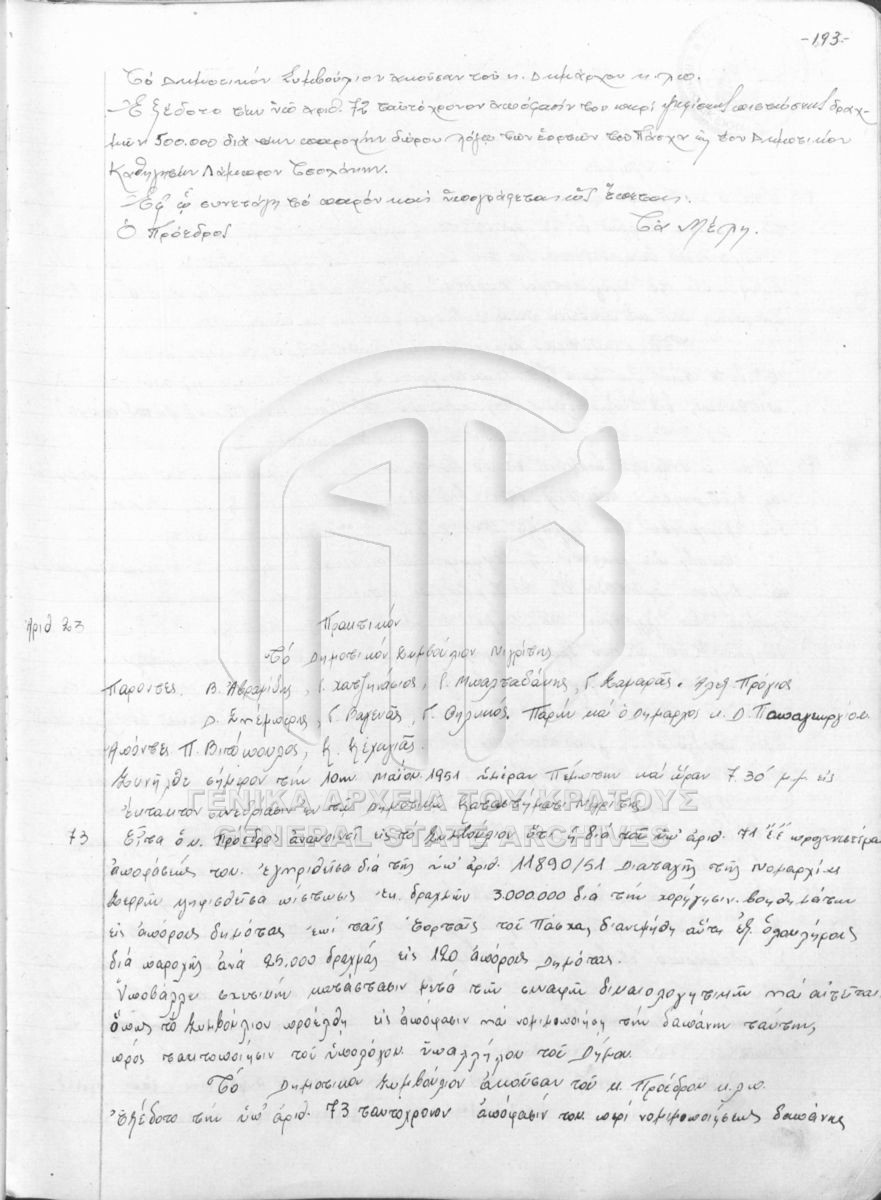 -193-
Τό Δημοτικόν Συμβούλιον ἀκοῦσαν τοῦ κ. Δημάρχου κ.λ.π.
Ἐξέδοτο τήν ὑπ' ἀριθ. 72 ταυτόχρονον ἀπόφασίν του περί ψηφίσεως πιστώσεως δραχ-
μῶν 500.000 διά τήν παροχήν δώρου λόγῳ τῶν ἑορτῶν τοῦ Πάσχα εἰς τόν Δημοτικόν
Καθηγητήν Λάμπρον
Ἐφ' ᾧ συνετάγη τό παρόν καί ὑπογράφεται ὡς ἕπεται.
Ὁ Πρόεδρος Τά Μέλη.
Ἀριθ 23 Πρακτικόν
Τό Δημοτικόν Συμβούλιον Νιγρίτης
Παρόντες. Β. Ἀβραμίδης, Γ. Χατζηνάσιος, Γ. Μπαλταδάκης, Γ. Καμαρᾶς. Ἀλεξ Πρόγιος
Δ. Γ. Βαγενᾶς, Γ. Παρών καί ὁ Δήμαρχος κ. Δ. Παπαγεωργίου.
Ἀπόντες Π. Βιτόπουλος, Κ. Κεχαγιᾶς.
Συνῆλθε σήμερον τήν 10ην Μαΐου 1951 ἡμέραν Πέμπτην καί ὥραν 7.30' μ.μ εἰς
ἔκτακτον συνεδρίασιν ἐν τῷ Δημοτικῷ Καταστήματι Νιγρίτης
ΓΕΝΙΚΑ ΑΡΧΕΙΑ ΤΟΥ ΚΡΑΤΟΥΣ
GENERAL STATE ARCHIVES
73 Εἶτα ὁ κ. Πρόεδρος ἀνακοινεῖ εἰς τό Συμβούλιον ὅτι ἡ διά τῆς ὑπ' ἀριθ. 71 ἐ.ἔ προγενεστέρας
ἀποφάσεώς του. ἐγκριθεῖσα διά τῆς ὑπ' ἀριθ. 11890/51 Διαταγῆς τῆς Νομαρχίας
Σερρῶν ψηφισθεῖσα πίστωσις ἐκ. δραχμῶν 3.000.000 διά τήν χορήγησιν. βοηθημάτων
εἰς ἀπόρους δημότας ἐπί ταῖς Ἑορταῖς τοῦ Πάσχα, διανεμήθη αὕτη ἐξ. ὁλοκλήρου
διά παροχῆς ἀνά 25.000 δραχμάς εἰς 120 ἀπόρους Δημότας.
Ὑποβάλλει σχετικήν κατάστασιν μετά τῶν συναφῶν δικαιολογητικῶν καί αἰτεῖται
ὅπως τό Συμβούλιον προέλθῃ εἰς ἀπόφασιν καί νομιμοποιήσῃ τήν δαπάνην ταύτην
πρός τακτοποίησιν τοῦ ὑπολόγου ὑπαλλήλου τοῦ Δήμου.
Τό Δημοτικόν Συμβούλιον ἀκοῦσαν τοῦ κ. Προέδρου κ.λ.π.
Ἐξέδοτο τήν ὑπ' ἀριθ. 73 ταυτόχρονον ἀπόφασίν του περί νομιμοποιήσεως δαπάνης